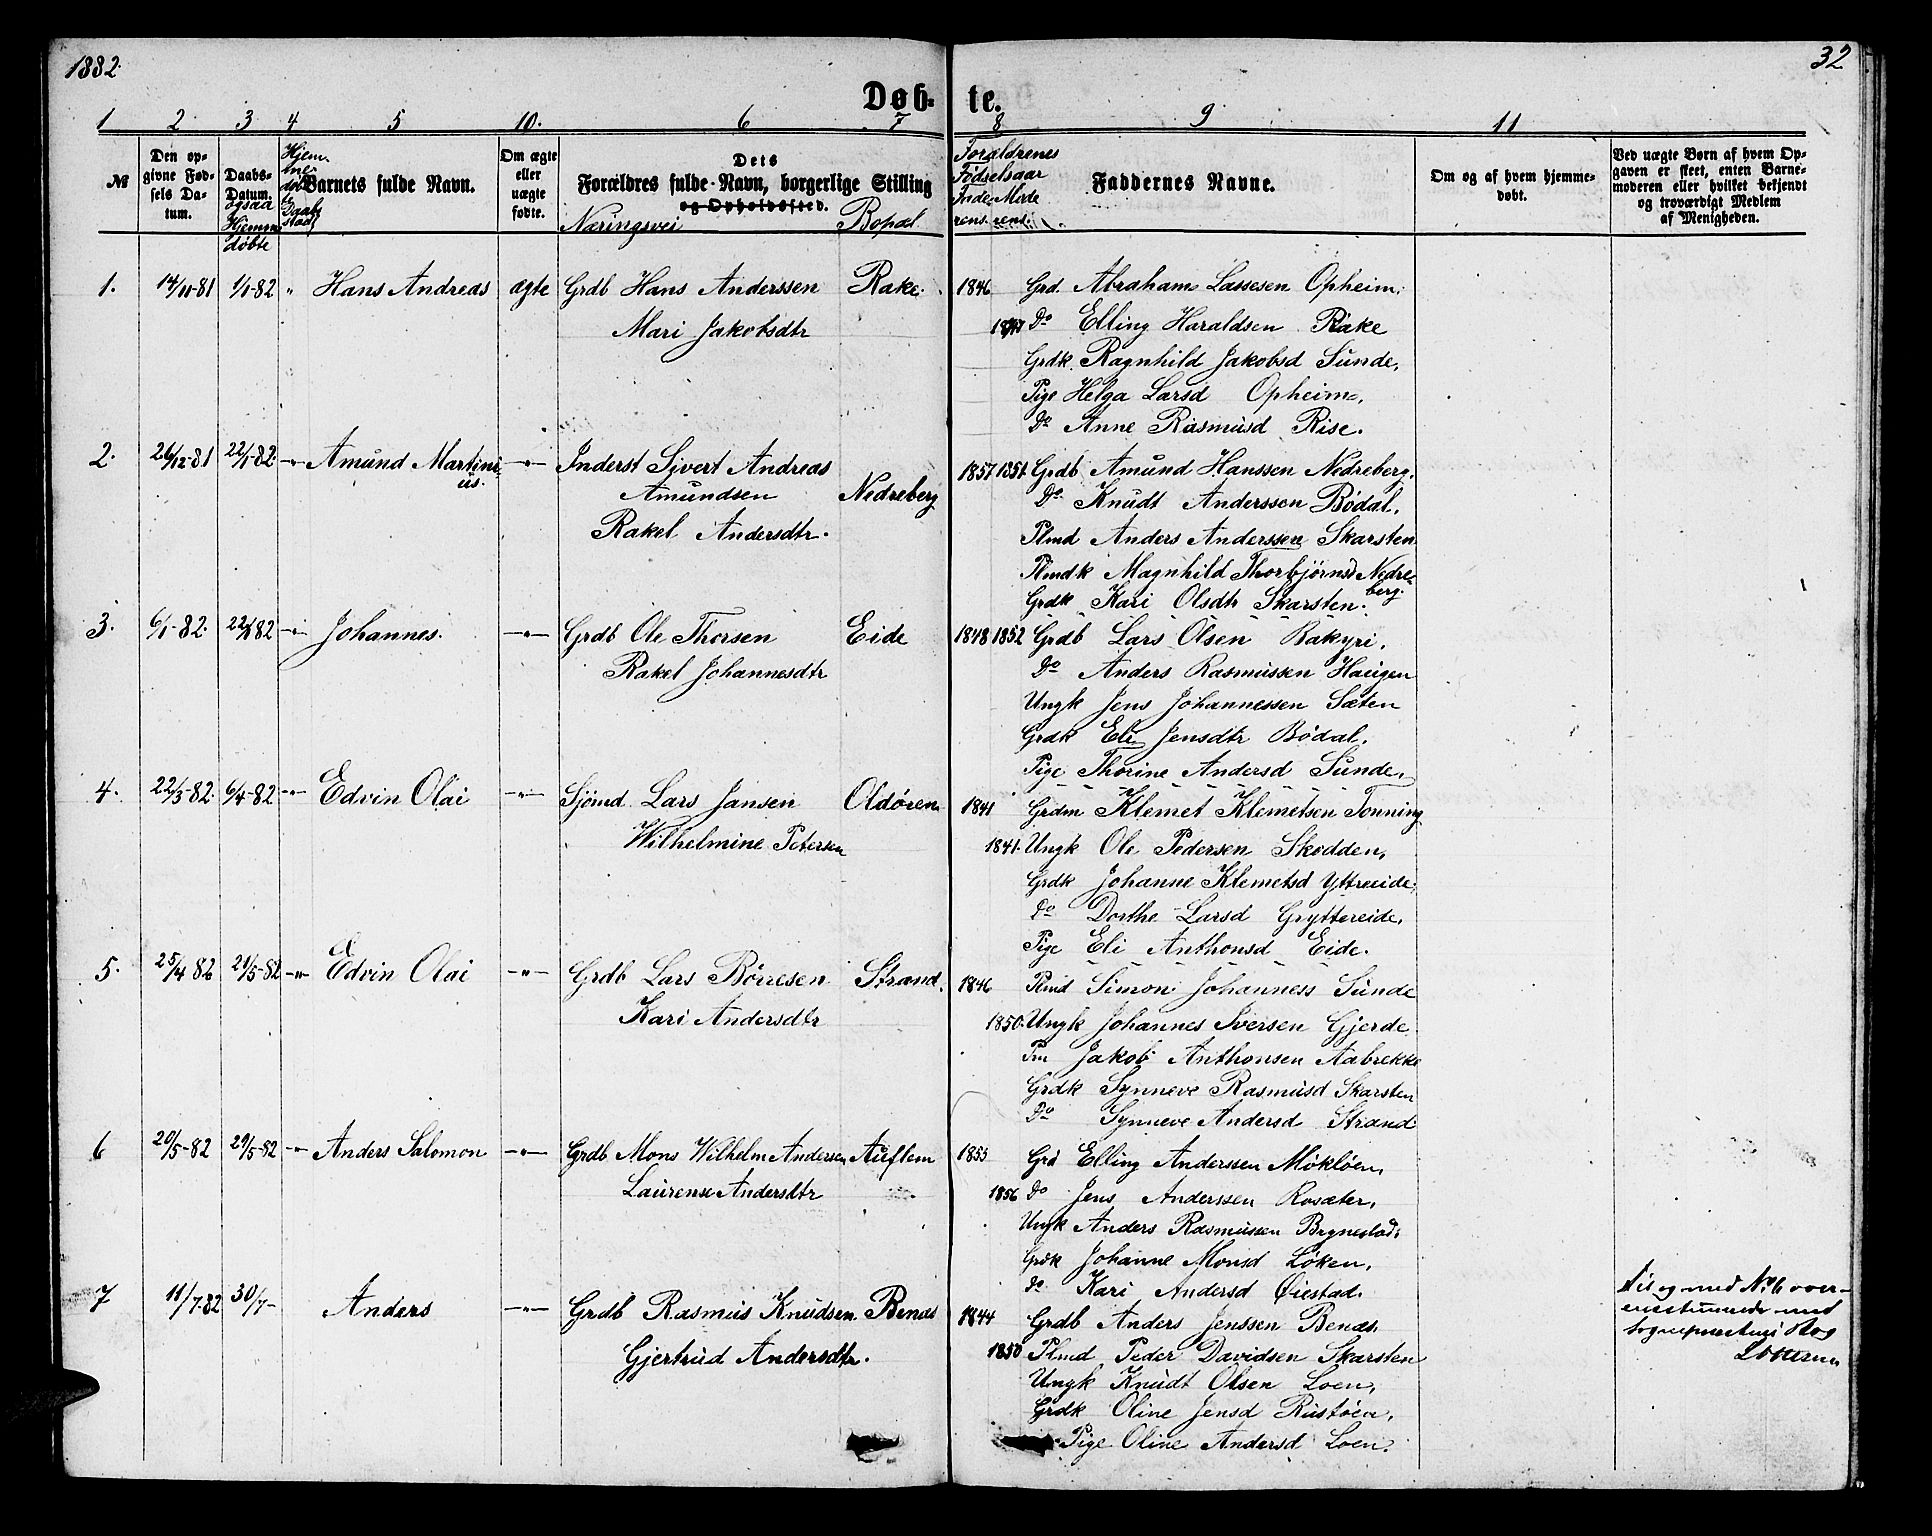 1882.
32
Døb- te.
1 2 3 4 5 10. 6 7 8 9 11
№
Den op-
givne Fød-
sels Da-
tum.
Daabs-
Datum.
ogsaa
Hjemme
døbte
Barnets fulde Navn.
Om ægte
eller
uægte
fødte.
Dets
Forældres fulde Navn, borgerlige Stilling
og Opholdssted.
Næringsvei Bopæl
Forældrenes
Födselsaar
Fade- Mode
rens. rens.
Faddernes Navne.
Om og af hvem hjemme-
døbt.
Ved uægte Børn af hvem Op-
gaven er skeet, enten Barne-
moderen eller hvilket bekjendt
og troværdigt Medlem
af Menigheden.
1. 14/11-81 1/1-82 " Hans Andreas ægte Grdb Hans Anderssen Rake. 1846 Grd. Abraham Lassesen Opheim.
Mari Jakobsdtr Do Elling Haraldsen Rake
Grdk. Ragnhild Jakobsd Sunde,
Pige Helga Larsd Opheim,
Do Anne Rasmusd Rise.
2. 26/12-81 22/1-82. -"- Amund Martini- -"- Inderst Sivert Andreas 1857 1851 Grdb Amund Hanssen Nedreberg.
us. Amundsen Nedreberg Do Knudt Anderssen Bödal,
Rakel Andersdtr. Plmd Anders Anderssen Skarsten
Plmdk Magnhild Thorbjörnsd Nedre-
berg.
Grdk Kari Olsdtr Skarsten.
3. 6/1-82. 22/1 82 -"- Johannes. -"- Grdb Ole Thorsen Eide 1848 1852 Grdb Lars Olsen Bakyri,
Rakel Johannesdtr Do Anders Rasmussen Haugen
Ungk Jens Johannessen Sæten
Grdk Eli Jensdtr Bödal,
Pige Thorine Andersd Sunde,
4. 22/3-82. 6/4-82 -"- Edvin Olai -"- Sjömd. Lars Jansen Oldören 1841 Grdm Klemet Klemetsen Tonning
Wilhelmine Petersen 1841. Ungk Ole Pedersen Skodden,
Grdk Johanne Klemetsd Yttreeide,
Do Dorthe Larsd Gryttereide,
Pige Eli Anthonsd Eide.
5. 25/4 82 21/5-82 -"- Edvin Olai -"- Grdb Lars Börresen Strand. 1846 Plmd Simon Johanness Sunde
Kari Andersdtr 1850. Ungk Johannes Iversen Gjerde
Pm Jakob Anthonsen Aabrekke
Grdk Synneve Rasmusd Skarsten
Do Synneve Andersd Strand
6 20/5-82 29/5-82 -"- Anders Salomon -"- Grdb Mons Wilhelm Andersen Auflem 1855 Grd Elling Anderssen Mökløen,
Laurense Andersdtr 1856 Do Jens Anderssen Rosæter,
Ungk Anders Rasmussen Brynestad,
Grdk Johanne Monsd Löken,
Do Kari Andersd Øiestad.
7 11/7-82 30/7- Anders -"- Grdb Rasmus Knudsen Benas 1844 Grdb Anders Jenssen Benas.
Gjertrud Andersdtr. 1850 Plmd Peder Davidsen Skarsten
Ungk Knudt Olsen Loen,
Grdk Oline Jensd Rustöen,
Pige Oline Andersd Loen.
til og med No 6 over-
ensstemmende med
Sogneprestens Bog